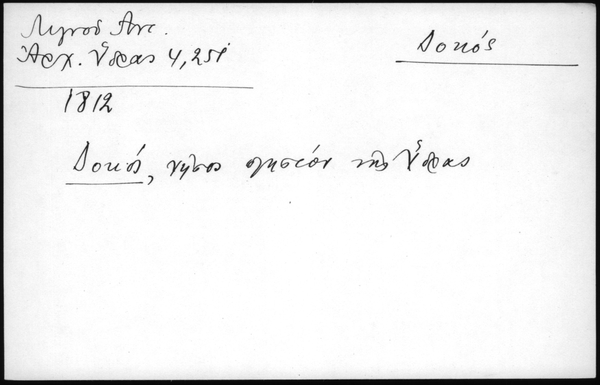 Λιγνοῦ Ἀντ.
Ἀρχ. Ὕδρας 4,251
Δοκός
1812
Δοκός, νῆσος πλησίον τῆς Ὕδρας